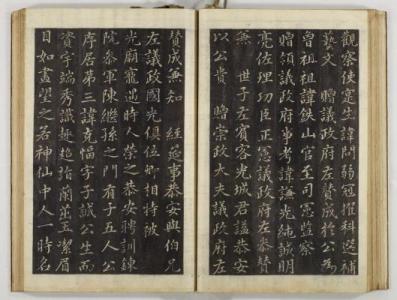 觀察使寔生諱問弱冠擢科選補
藝文 贈議政府左贊成於公為
曾祖祖諱鉄山官至司憲監察
贈領議政府事考諱謙光純誠明
亮佐理功臣正憲議政府左叅贊
兼 世子左賓客光城君謚恭安
以公貴 贈崇政大夫議政府左
贊成兼知 經筵事恭安與伯兄
左議政國光俱位卿相特被
光廟寵遇時人榮之恭安聘訓鍊
院叅軍陳繼孫之門有子五人公
序居苐三諱克愊字子誠公生而
資宇端秀識趣超詣蘭茁玉潔眉
目如畫望之若神仙中人一時名